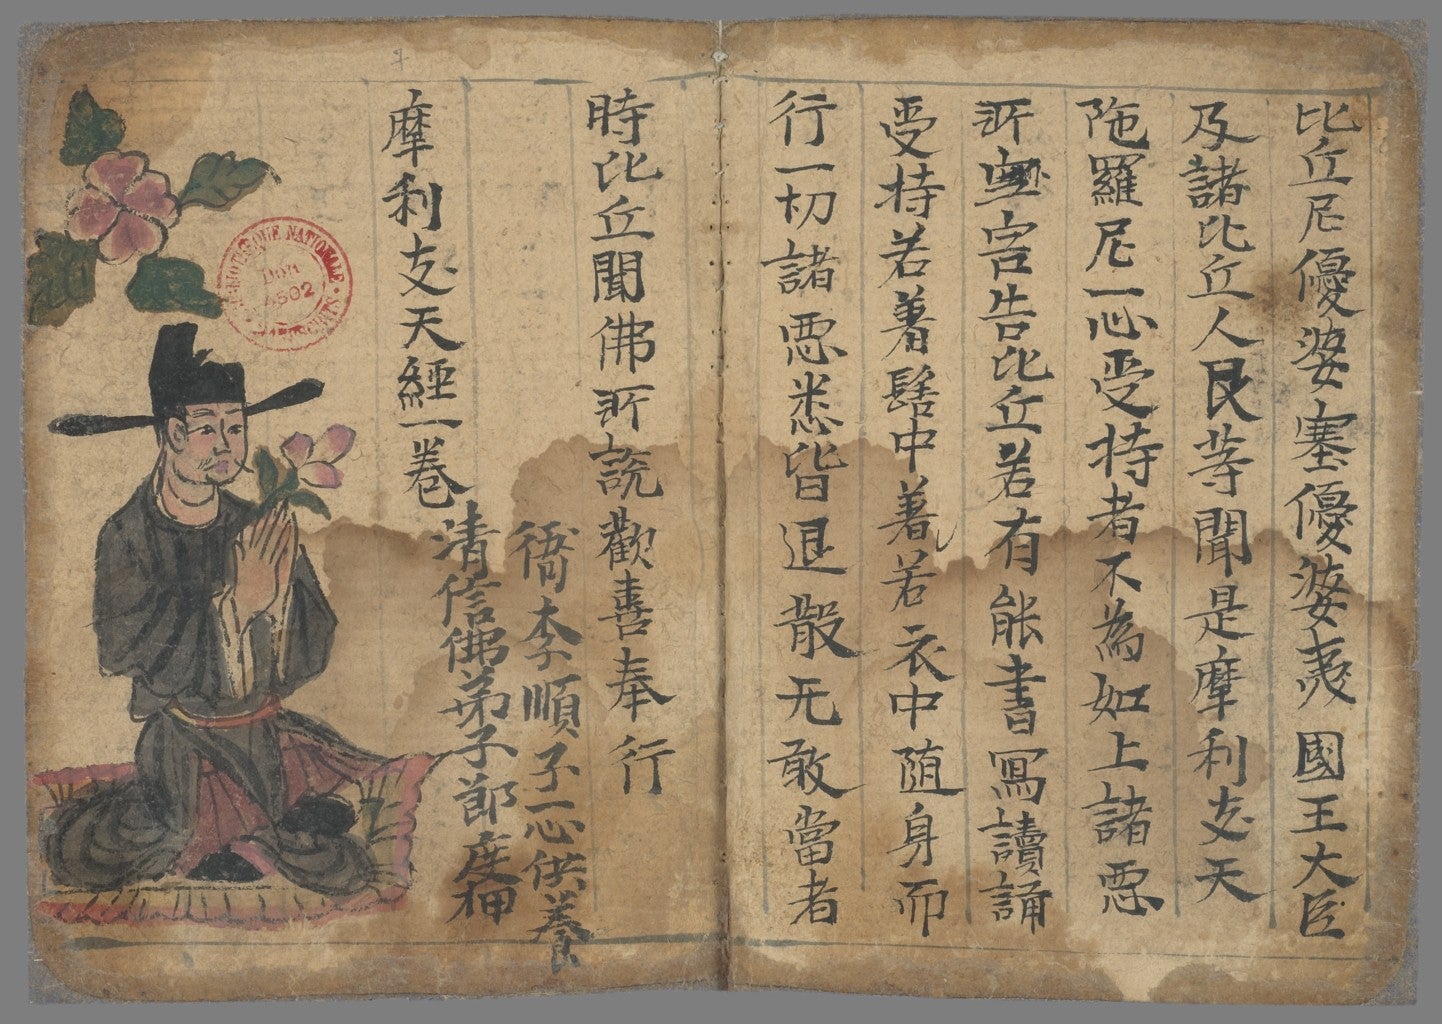 比丘尼優婆塞優婆夷國王大臣
及諸比丘人民等聞是摩利支天
陁羅尼一心受持者不為如上諸惡
所害告比丘若有能書寫讀誦
受持若著髻中著若衣中随身而
行一切諸惡悉皆退散无敢當者
時比丘聞佛所說歡喜奉行
摩利支天經一卷
清信佛弟子節度押
衙李順子一心供養
BIBLIOTHEQUE NATIONALE
Don
4502
MANUSCRITS